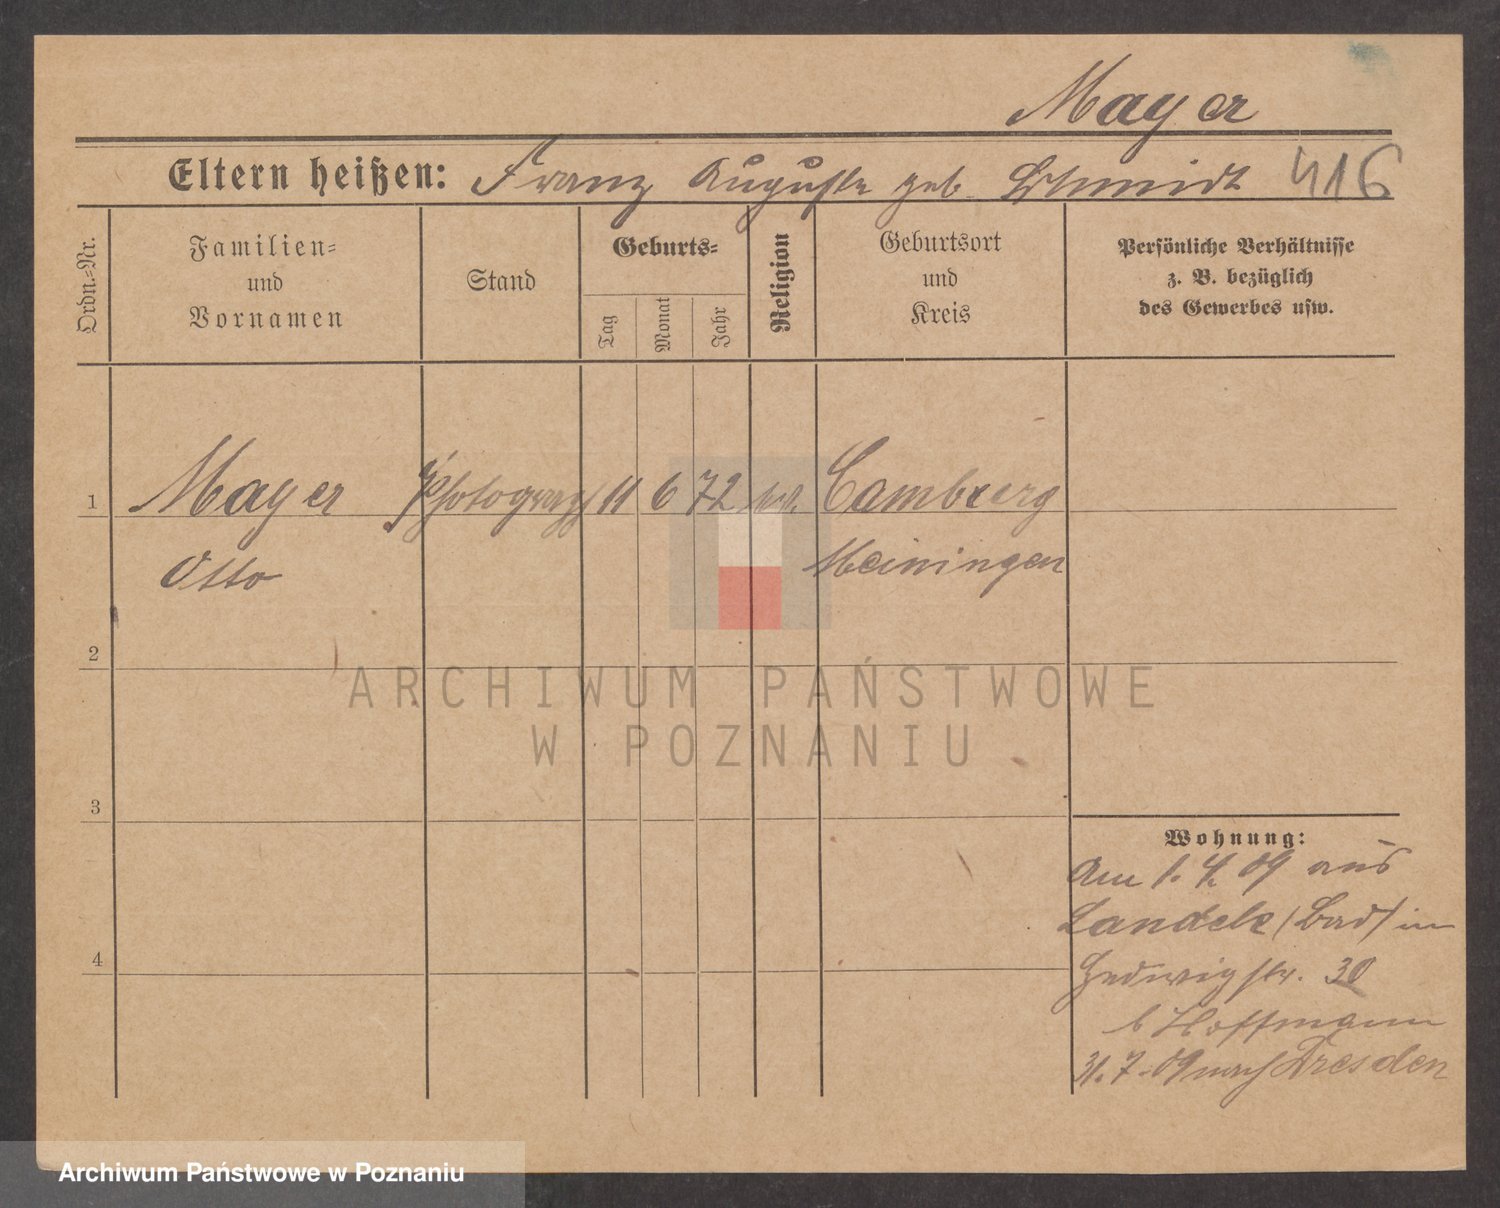 Mayer
Eltern heißen: Franz Auguste geb. Schmidt 416
Ordn.=Nr.
Familien=
und
Vornamen
Stand
Geburts=
Tag
Monat
Jahr
Religion
Geburtsort
und
Kreis
Persönliche Verhältnisse
z. B. bezüglich
des Gewerbes usw.
1 Mayer Photograph 11 6 72 Camberg
Otto Meiningen
2
3
4
Wohnung:
Am 1. 4. 09 aus
Landek (Bad) in
Hedwigstr. 30
b Hoffmann
31.7.09 nach Dresden
ARCHIWUM PAŃSTWOWE
W POZNANIU
Archiwum Państwowe w Poznaniu